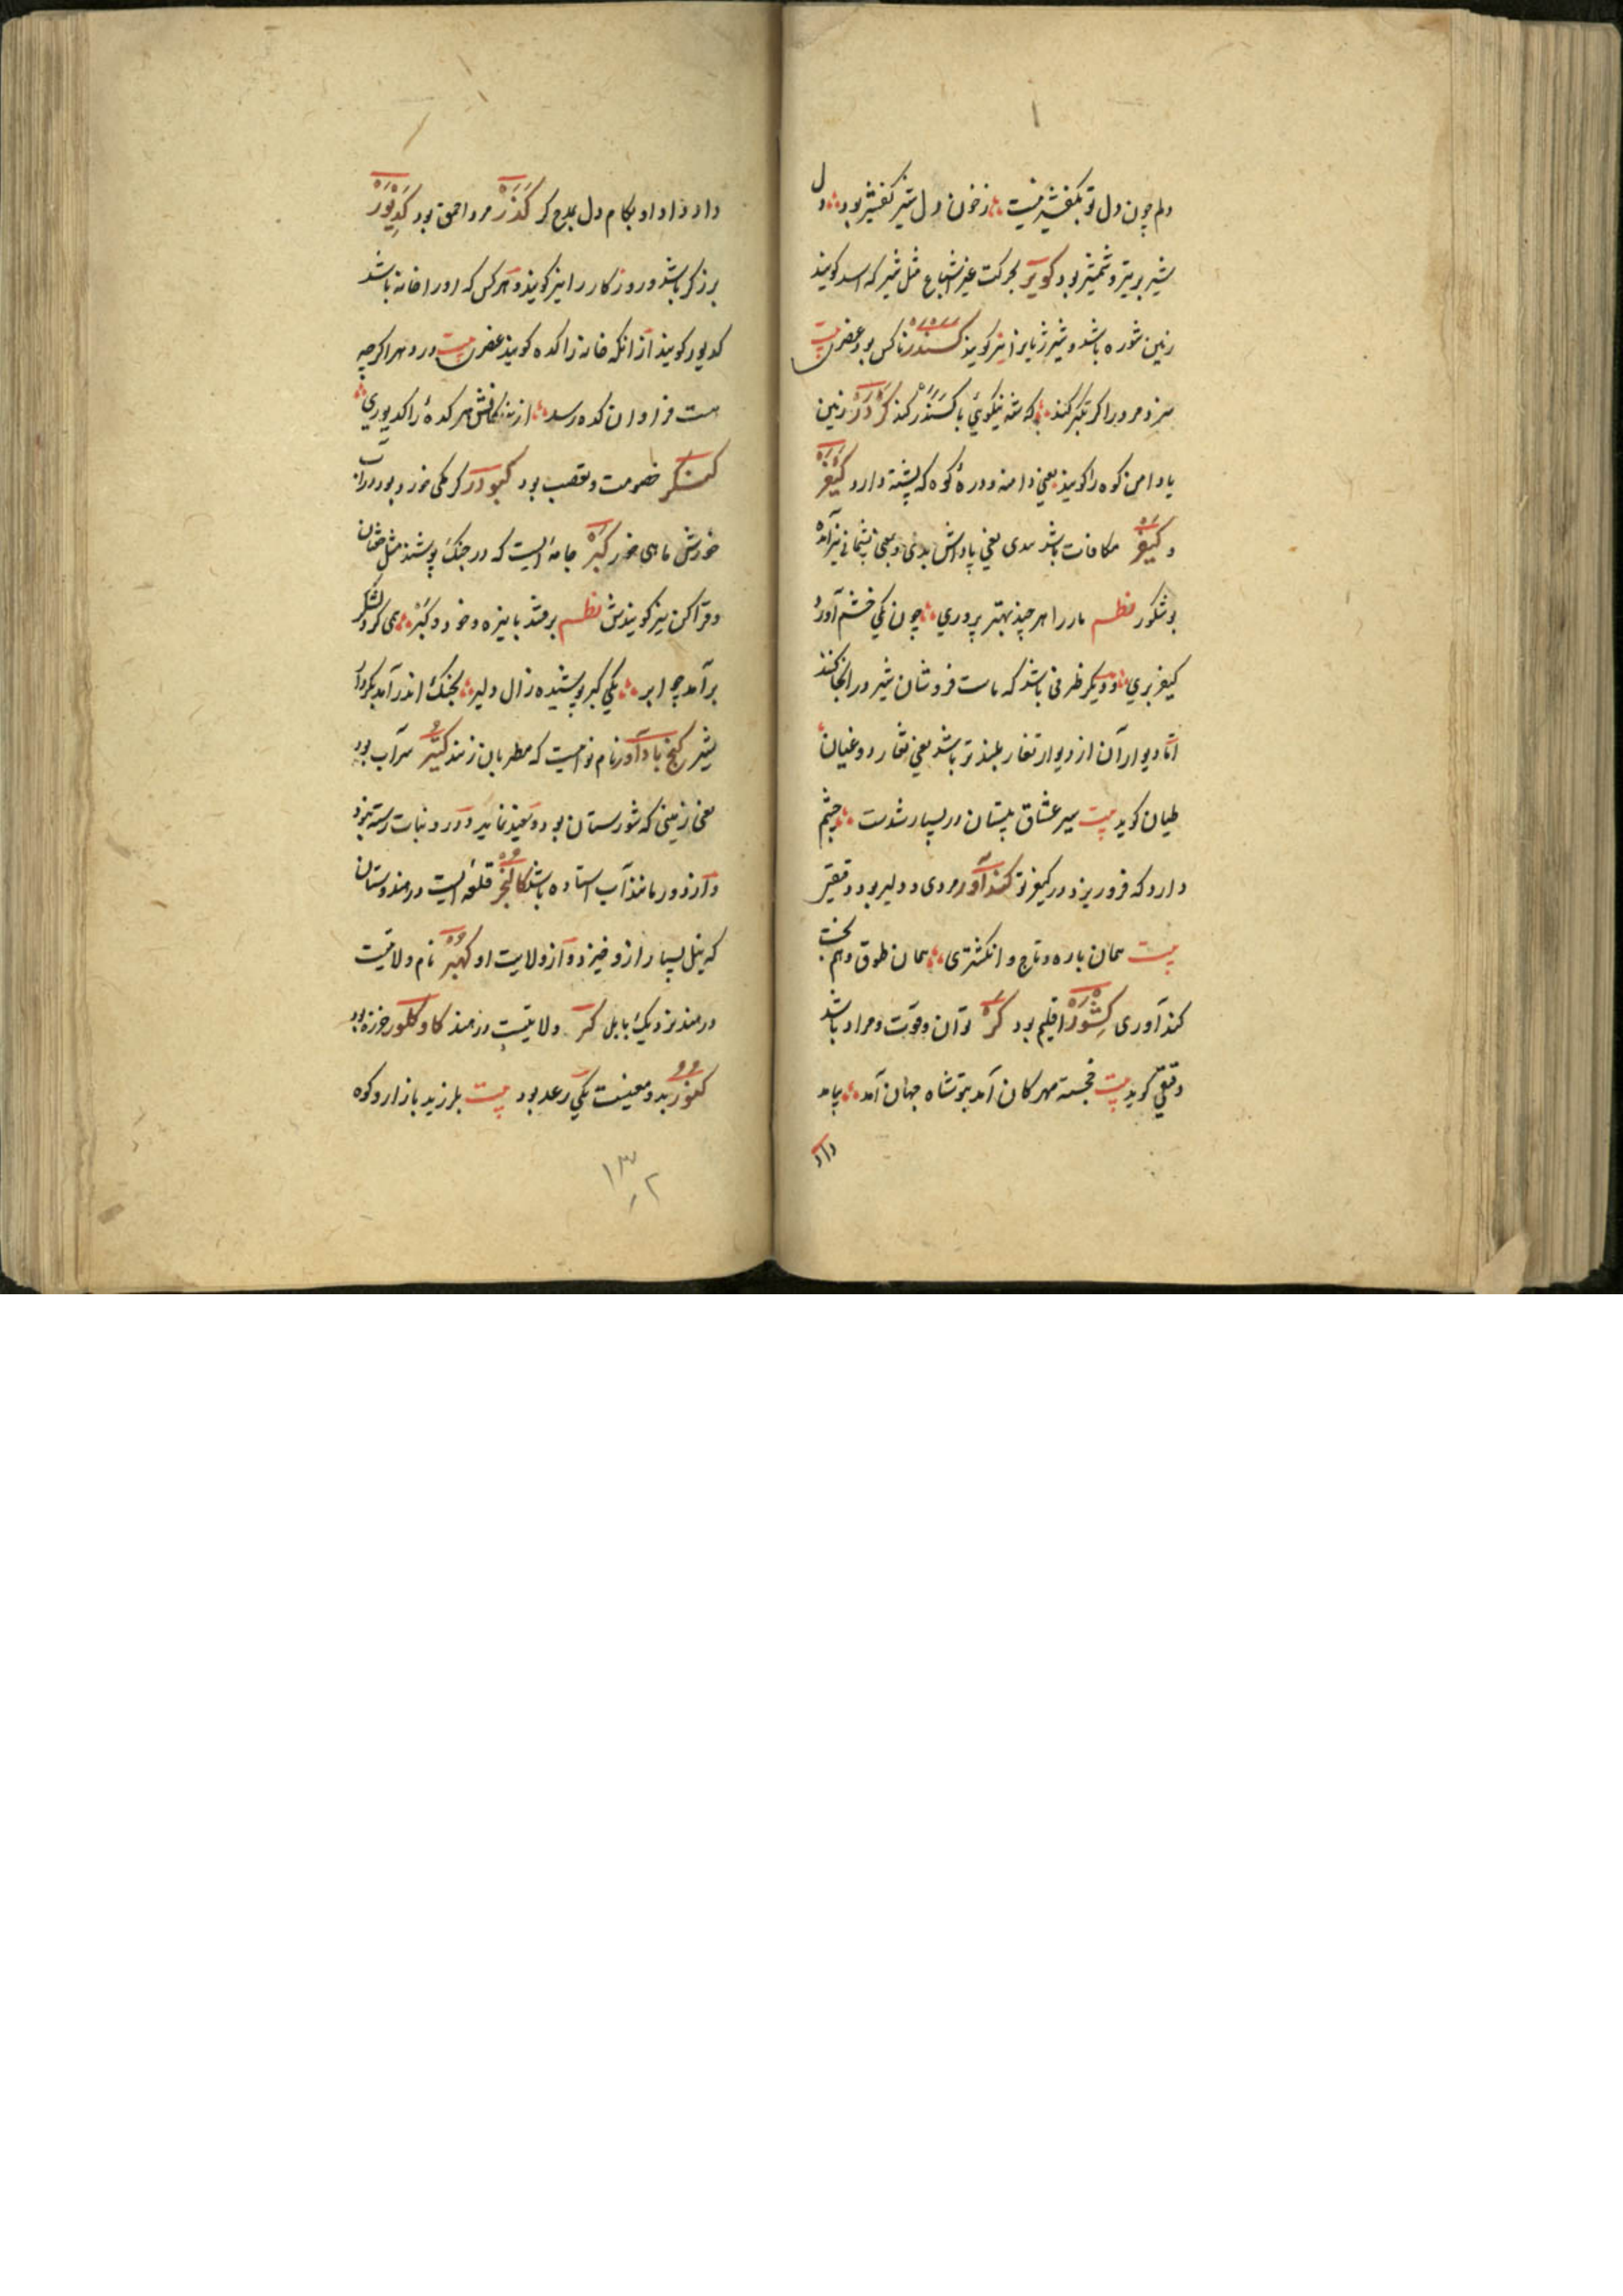 دلم چون دل تو بکفشیر نیست ؞ ز خون دل شیر کفشیر بود ؞ دل
شیر بریتر و شمشیر بود کویر بحرکت غیر اشباع مثل شیر که اسد کویند
زمین شوره باشد و شیر ژیانرا نیز کویند کسندر ناکس بود عنصری بیت
سزد مرورا کر تکبر کند ؞ که شه نیکویی با کسندر کند کردر زمین
با دامن کوه را کویند یعنی دامنه و درهٔ کوه که پشته دارد کیفر
و کیفر مکافات باشد بدی یعنی پاداش بدی و بمعنی پشیمانی نیز آمده
بوشکور نظم مار را هر چند بهتر پروری ؞ چون یکی خشم آورد
کیفر بری ؞ و دیکر ظرفی باشد که ماست فروشان شیر در آنجا کنند
اما دیوار آن از دیوار تغار بلندتر باشد یعنی تغار دوغیان
طیان کوید بیت سیر عشاق پستان در بسیار شدست ؞ چشم
دارد که فرو ریزد در کیفر تو کندآور مردی و دلیر بود دقیقی
بیت همان یاره و تاج و انکشتری ؞ همان طوق و هم تخت
کندآوری کشور اقلیم بود کر توان و قوت و مراد باشد
دقیقی کوید بیت خجسته مهرکان آمد بتو شاه جهان آمد ؞ بباید
داد
داد داد او بکام دل بدح کر کذر مرد احمق بود کدیور
برزکر باشد و روزکار را نیز کویند و هر کس که او را خانه باشد
کدیور کویند از آنکه خانه را کده کویند عنصری بیت در و نهر اکرچه
هست فراوان کده رسد ؞ از بندکانش هر کده را کدیوری ؞
خصومت و تعصب بود کبودر کرمکی خرد بود در آب
خورش ماهی خورد کبر جامهٔ ایست که در جنک پوشند مثل خفتان
و قزاکن نیز کویندش نظم برفتند با نیزه و خود و کبر ؞ همی کرد لشکر
برآمد چو ابر ؞ یکی کبر پوشیده زال دلیر ؞ بجنک اندر آمد بکردار
شیر کنج بادآور نام نواییست که مطربان زنند کتیر سراب بود
یعنی زمینی که شورستان بود و سفید نماید و درو نبات رسته نبود
و از دور مانند آب استاده باشد کالنجر قلعه ایست در هندوستان
که نیل بسیار ازو خیزد و از ولایت او کهبر نام ولایتیست
در هند نزدیک بابل کر ولایتیست در هند کاوکلور خرزه بود
کنور بدو معنیست یکی رعد بود بیت بلرزید بازار و کوه
۱۳۲